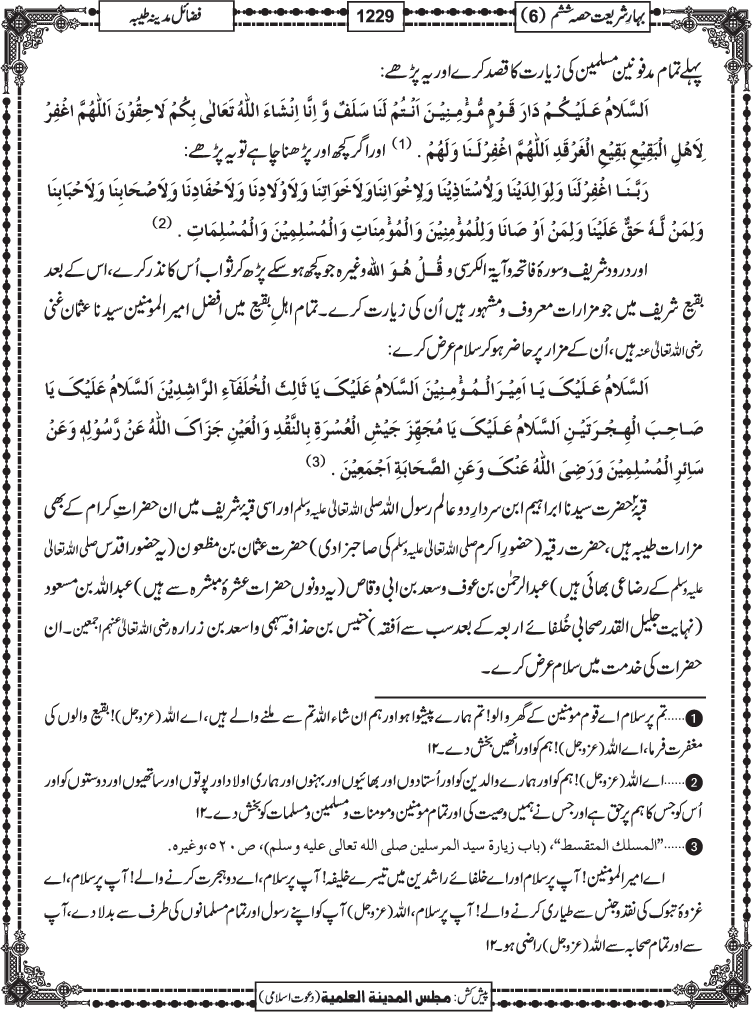 بہارِ شریعت حصہ ششم (6)
1229
فضائل مدینہ طیبہ
پہلے تمام مدفونین مسلمین کی زیارت کا قصد کرے اور یہ پڑھے:
اَلسَّلَامُ عَلَیْکُمْ دَارَ قَوْمٍ مُّؤْمِنِیْنَ اَنْتُمْ لَنَا سَلَفٌ وَّ اِنَّا اِنْشَاءَ اللّٰہُ تَعَالٰی بِکُمْ لَاحِقُوْنَ اَللّٰھُمَّ اغْفِرْ
لِاَھْلِ الْبَقِیْعِ بَقِیْعِ الْغَرْقَدِ اَللّٰھُمَّ اغْفِرْلَنَا وَلَھُمْ . (1) اور اگر کچھ اور پڑھنا چاہے تو یہ پڑھے:
رَبَّنَا اغْفِرْلَنَا وَلِوَالِدَیْنَا وَلِاُسْتَاذِیْنَا وَلِاِخْوَانِنَا وَلِاَخَوَاتِنَا وَلِاَوْلَادِنَا وَلِاَحْفَادِنَا وَلِاَصْحَابِنَا وَلِاَحْبَابِنَا
وَلِمَنْ لَّہٗ حَقٌّ عَلَیْنَا وَلِمَنْ اَوْصَانَا وَلِلْمُؤْمِنِیْنَ وَالْمُؤْمِنَاتِ وَالْمُسْلِمِیْنَ وَالْمُسْلِمَاتِ . (2)
اور درود شریف و سورۂ فاتحہ و آیۃ الکرسی و قُلْ ھُوَ اللّٰہ وغیرہ جو کچھ ہو سکے پڑھ کر ثواب اُس کا نذر کرے، اس کے بعد
بقیع شریف میں جو مزارات معروف و مشہور ہیں اُن کی زیارت کرے۔ تمام اہلِ بقیع میں افضل امیر المومنین سیدنا عثمان غنی
رضی اللہ تعالیٰ عنہ ہیں، اُن کے مزار پر حاضر ہو کر سلام عرض کرے:
اَلسَّلَامُ عَلَیْکَ یَا اَمِیْرَ الْمُؤْمِنِیْنَ اَلسَّلَامُ عَلَیْکَ یَا ثَالِثَ الْخُلَفَآءِ الرَّاشِدِیْنَ اَلسَّلَامُ عَلَیْکَ یَا
صَاحِبَ الْھِجْرَتَیْنِ اَلسَّلَامُ عَلَیْکَ یَا مُجَھِّزَ جَیْشِ الْعُسْرَۃِ بِالنَّقْدِ وَالْعَیْنِ جَزَاکَ اللّٰہُ عَنْ رَّسُوْلِہٖ وَعَنْ
سَائِرِ الْمُسْلِمِیْنَ وَرَضِیَ اللّٰہُ عَنْکَ وَعَنِ الصَّحَابَۃِ اَجْمَعِیْنَ . (3)
قبۂ حضرت سیدنا ابراہیم ابن سردارِ دو عالم رسول اللہ صلی اللہ تعالیٰ علیہ وسلم اور اسی قبۂ شریف میں ان حضراتِ کرام کے بھی
مزارات طیبہ ہیں، حضرت رقیہ (حضورِ اکرم صلی اللہ تعالیٰ علیہ وسلم کی صاحبزادی) حضرت عثمان بن مظعون (یہ حضورِ اقدس صلی اللہ تعالیٰ
علیہ وسلم کے رضاعی بھائی ہیں) عبدالرحمٰن بن عوف و سعد بن ابی وقاص (یہ دونوں حضرات عشرۂ مبشرہ سے ہیں) عبداللہ بن مسعود
(نہایت جلیل القدر صحابی خُلفائے اربعہ کے بعد سب سے اَفقہ) خنیس بن حذافہ سہمی و اسعد بن زرارہ رضی اللہ تعالیٰ عنہم اجمعین۔ ان
حضرات کی خدمت میں سلام عرض کرے۔
1 ......تم پر سلام اے قوم مومنین کے گھر والو! تم ہمارے پیشوا ہو اور ہم ان شاء اللہ تم سے ملنے والے ہیں، اے اللہ (عزوجل)! بقیع والوں کی
مغفرت فرما، اے اللہ (عزوجل)! ہم کو اور انھیں بخش دے۔۱۲
2 ......اے اللہ (عزوجل)! ہم کو اور ہمارے والدین کو اور اُستادوں اور بھائیوں اور بہنوں اور ہماری اولاد اور پوتوں اور ساتھیوں اور دوستوں کو اور
اُس کو جس کا ہم پر حق ہے اور جس نے ہمیں وصیت کی اور تمام مومنین و مومنات و مسلمین و مسلمات کو بخش دے۔۱۲
3 ......”المسلك المتقسط“، (باب زیارة سید المرسلین صلی الله تعالی علیه و سلم)، ص٥٢٠، وغیرہ.
اے امیر المومنین! آپ پر سلام اور اے خلفائے راشدین میں تیسرے خلیفہ! آپ پر سلام، اے دو ہجرت کرنے والے! آپ پر سلام، اے
غزوۂ تبوک کی نقد و جنس سے طیاری کرنے والے! آپ پر سلام، اللہ (عزوجل) آپ کو اپنے رسول اور تمام مسلمانوں کی طرف سے بدلا دے، آپ
سے اور تمام صحابہ سے اللہ (عزوجل) راضی ہو۔۱۲
پیش کش: مجلس المدینة العلمیة (دعوت اسلامی)